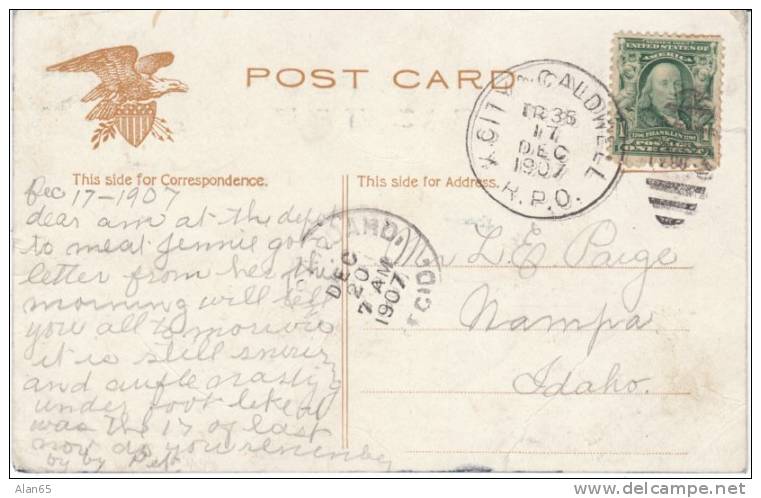 POST CARD
K.CITY & CALDWELL
TR 35
17
DEC
1907
R.P.O.
UNITED STATES OF
AMERICA
1
FRANKLIN
POSTAGE
ONE CENT
This side for Correspondence.
This side for Address.
Dec 17-1907
dear am at the depot
to meat Jennie got a
letter from her this
morning will tell
you all tomorrow
it is still
and awfle nasty
under foot like it
was the 17 of last
now do you remember
by by Pet
DEC
20
7 AM
1907
L E Paige
Nampa
Idaho.
Alan65
www.delcampe.net